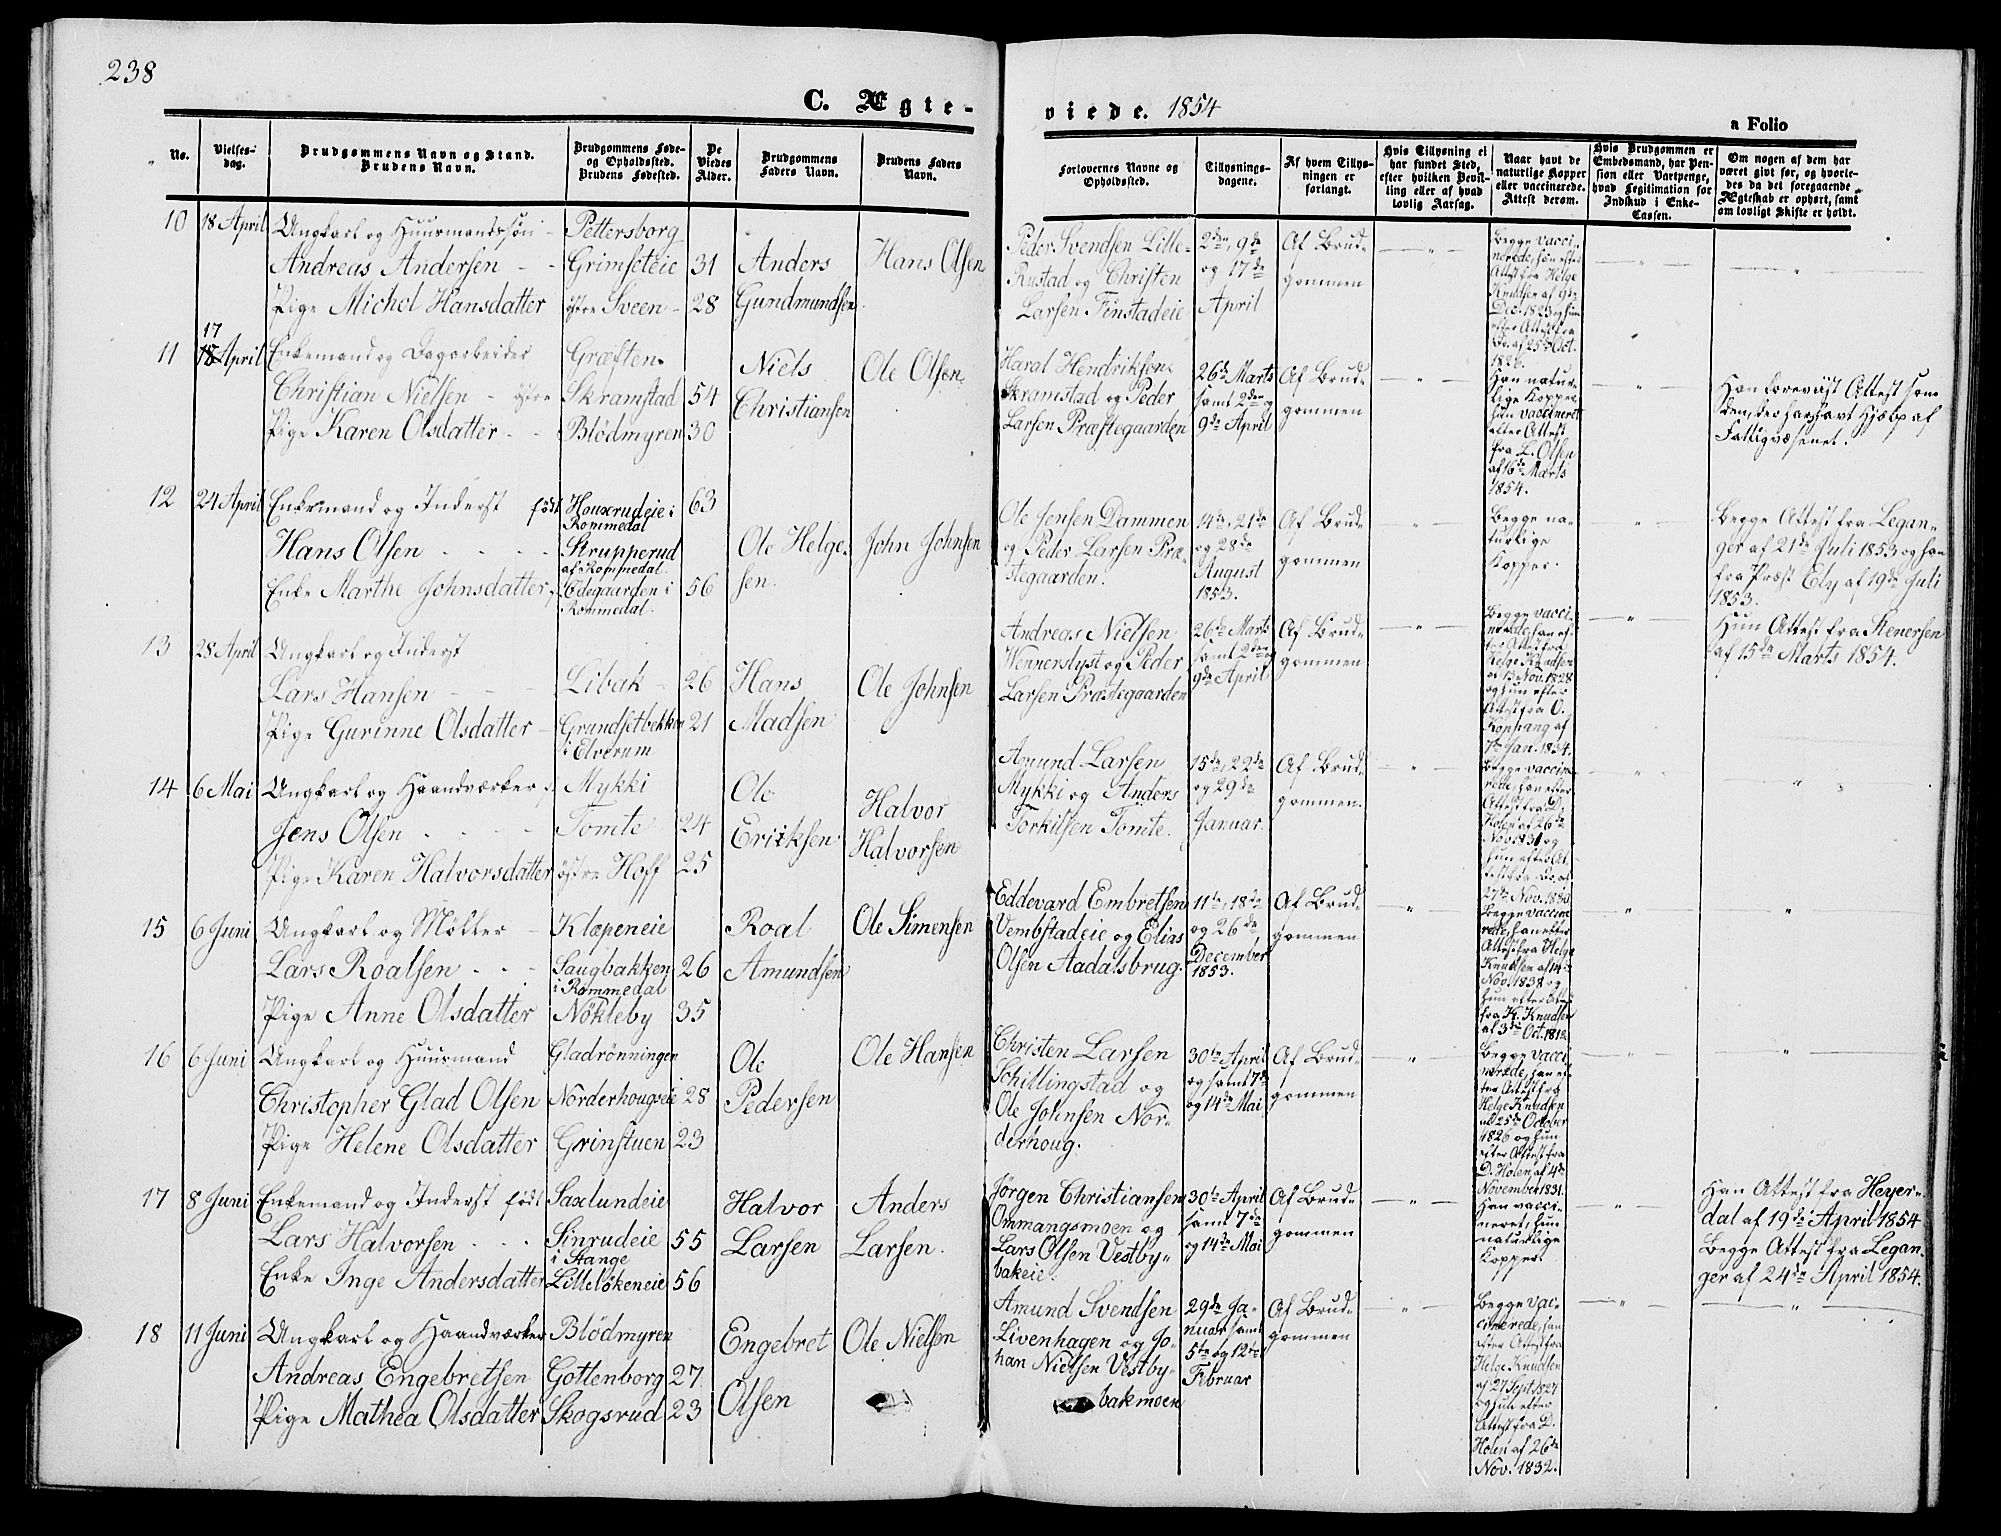 238
C. Ægte-
viede. 1854
a Folio
No.
Vielses-
dag.
Brudgommens Navn og Stand.
Brudens Navn.
Brudgommens Føde-
og Opholdssted.
Brudens Fødested.
De
Viedes
Alder.
Brudgommens
Faders Navn.
Brudens Faders
Navn.
Forlovernes Navne og
Opholdssted.
Tillysnings-
dagene.
Af hvem Tillys-
ningen er
forlangt.
Hvis Tillysning ei
har fundet Sted,
efter hvilken Bevil-
ling eller af hvad
lovlig Aarsag.
Naar havt de
naturlige Kopper
eller vaccinerede.
Attest derom.
Hvis Brudgommen er
Embedsmand, har Pen-
sion eller Vartpenge,
hvad Legitimation for
Indskud i Enke-
Cassen.
Om nogen af dem har
været givt før, og hvorle-
des da det foregaaende
Ægteskab er ophørt, samt
om lovligt Skifte er holdt.
10 18 April Ungkarl og Huusmandssøn
Andreas Andersen
Pige Michol Hansdatter
Pettersborg
Grimseteie 31
østre Sveen 28
Anders
Gundmundsen
Hans Olsen
Peder Svendsen Lille-
Rustad og Christen
Larsen Finstadeie
2den, 9de
og 17de
April
Af Brud-
gommen
Begge vacci-
nerede, han efter
Attest fra Helge
Knudsen af 9de
Dec. 1823 og hun
efter Attest fra
Do. af 25de Oct.
1826.
11 17
18 April Enkemand og Dagarbeider
Christian Nielsen østre
Pige Karen Olsdatter
Græsten
Skramstad 54
Blödmyren 30
Niels
Christiansen
Ole Olsen
Haral Hendriksen
Skramstad og Peder
Larsen Præstegaarden
26de Marts
samt 2den og
9de April
Af Brud-
gommen
Han natur-
lige Kopper,
hun vaccineret
efter Attest
fra L. Olsen
af 16de Marts
1854.
Han foreviist Attest som
den, der har havt Hjælp af
Fattigvæsenet.
12 24 April Enkemand og Inderst født
Hans Olsen
Enke Marthe Johnsdatter f.
Houxrudeie i
Rommedal
Strupperud
af Rommedal
Ödegaarden i
Rommedal.
63
56
Ole Helge-
sen.
John Johnsen
Ole Jensen Dammen
og Peder Larsen Præ-
stegaarden.
14de, 21de
og 28de
August
1853.
Af Brud-
gommen
Begge na-
turlige
Kopper.
Begge Attest fra Legan-
ger af 21de Juli 1853 og han
fra Præst Ely af 19de Juli
1853.
13 28 April Ungkarl og Inderst
Lars Hansen
Pige Gurinne Olsdatter
Libak 26
Grundsetbekken 21
i Elverum
Hans
Madsen
Ole Johnsen
Andreas Nielsen
Wennerslyst og Peder
Larsen Præstegaarden
26de Marts
samt 2den og
9de April
Af Brud-
gommen
Begge vacci-
nerede, han ef-
ter Attest fra
Helge Knudsen
af 13 Nov. 1828
og hun efter
Attest fra O.
Kophang af
7de Jan. 1834.
Hun Attest fra Stenersen
af 15de Marts 1854.
14 6 Mai Ungkarl og Haandværker f.
Jens Olsen
Pige Karen Halvorsdatter
Mykki
Tomte 24
østre Hoff 25
Ole
Eriksen
Halvor
Halvorsen
Amund Larsen
Mykki og Anders
Torkilsen Tomte.
15de, 22de
og 29de
Januar.
Af Brud-
gommen.
Begge vaccine-
rede, han efter
Attest fra D.
Holen af 26de
Nov. 1831 og
hun efter At-
test fra Do. af
27de Nov. 1830
15 6 Juni Ungkarl og Møller
Lars Roalsen
Pige Anne Olsdatter
Klæpeneie
Saugbakken 26
i Rommedal
Nökleby 35
Roal
Amundsen
Ole Simensen
Eddevard Embretsen
Vembstadeie og Elias
Olsen Aadalsbrug.
11te, 18de
og 26de
December
1853.
Af Brud-
gommen
Begge vaccine-
rede, han efter
Attest fra Helge
Knudsen af 14
Nov. 1838 og
hun efter Attest
fra H. Knudsen
af 3de Oct. 1818.
16 6 Juni Ungkarl og Huusmand
Christopher Glad Olsen
Pige Helene Olsdatter
Gladrönningen
Norderhougseie 28
Grinstuen 23
Ole
Pedersen
Ole Hansen
Christen Larsen
Schillingstad og
Ole Johnsen Nor-
derhoug.
30te April
og samt 7de
og 14de Mai
Af Brud-
gommen
Begge vacci-
nerede, han ef-
ter Attest fra
Helge Knudsen
af 25de October
1826 og hun
efter Attest fra
D. Holen af 4de
November 1831.
17 8 Juni Enkemand og Inderst født
Lars Halvorsen
Enke Inge Andersdatter
Saxlundeie
Sinrudeie 55
i Stange
Lilleløkeneie 56
Halvor
Larsen
Anders
Larsen.
Jörgen Christiansen
Ommangsmoen og
Lars Olsen Vestby-
bakeie.
30te April
samt 7de
og 14de Mai
Af Brud-
gommen
Han vacci-
neret, hun
naturlige
Kopper.
Han Attest fra Heyer-
dal af 19de April 1854
Begge Attest fra Legan-
ger af 24de April 1854.
18 11 Juni Ungkarl og Haandværker
Andreas Engebretsen
Pige Mathea Olsdatter
Blödmyren
Gottenborg 27
Skogsrud 23
Engebret
Olsen
Ole Nielsen
Amund Svendsen
Livenhagen og Jo-
han Nielsen Vestby-
bakmoen
29de Ja-
nuar samt
5te og 12te
Februar
Af Brud-
gommen
Begge vac-
cinerede, han
efter Attest fra
Helge Knudsen
af 27 Sept. 1827
og hun efter
Attest fra D.
Holen af 26de
Nov. 1832.